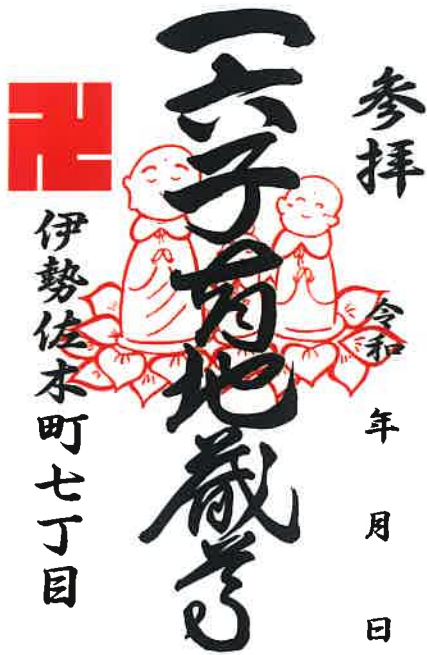 参拝
令和 年 月 日
一六子育地蔵尊
卍
伊勢佐木町七丁目